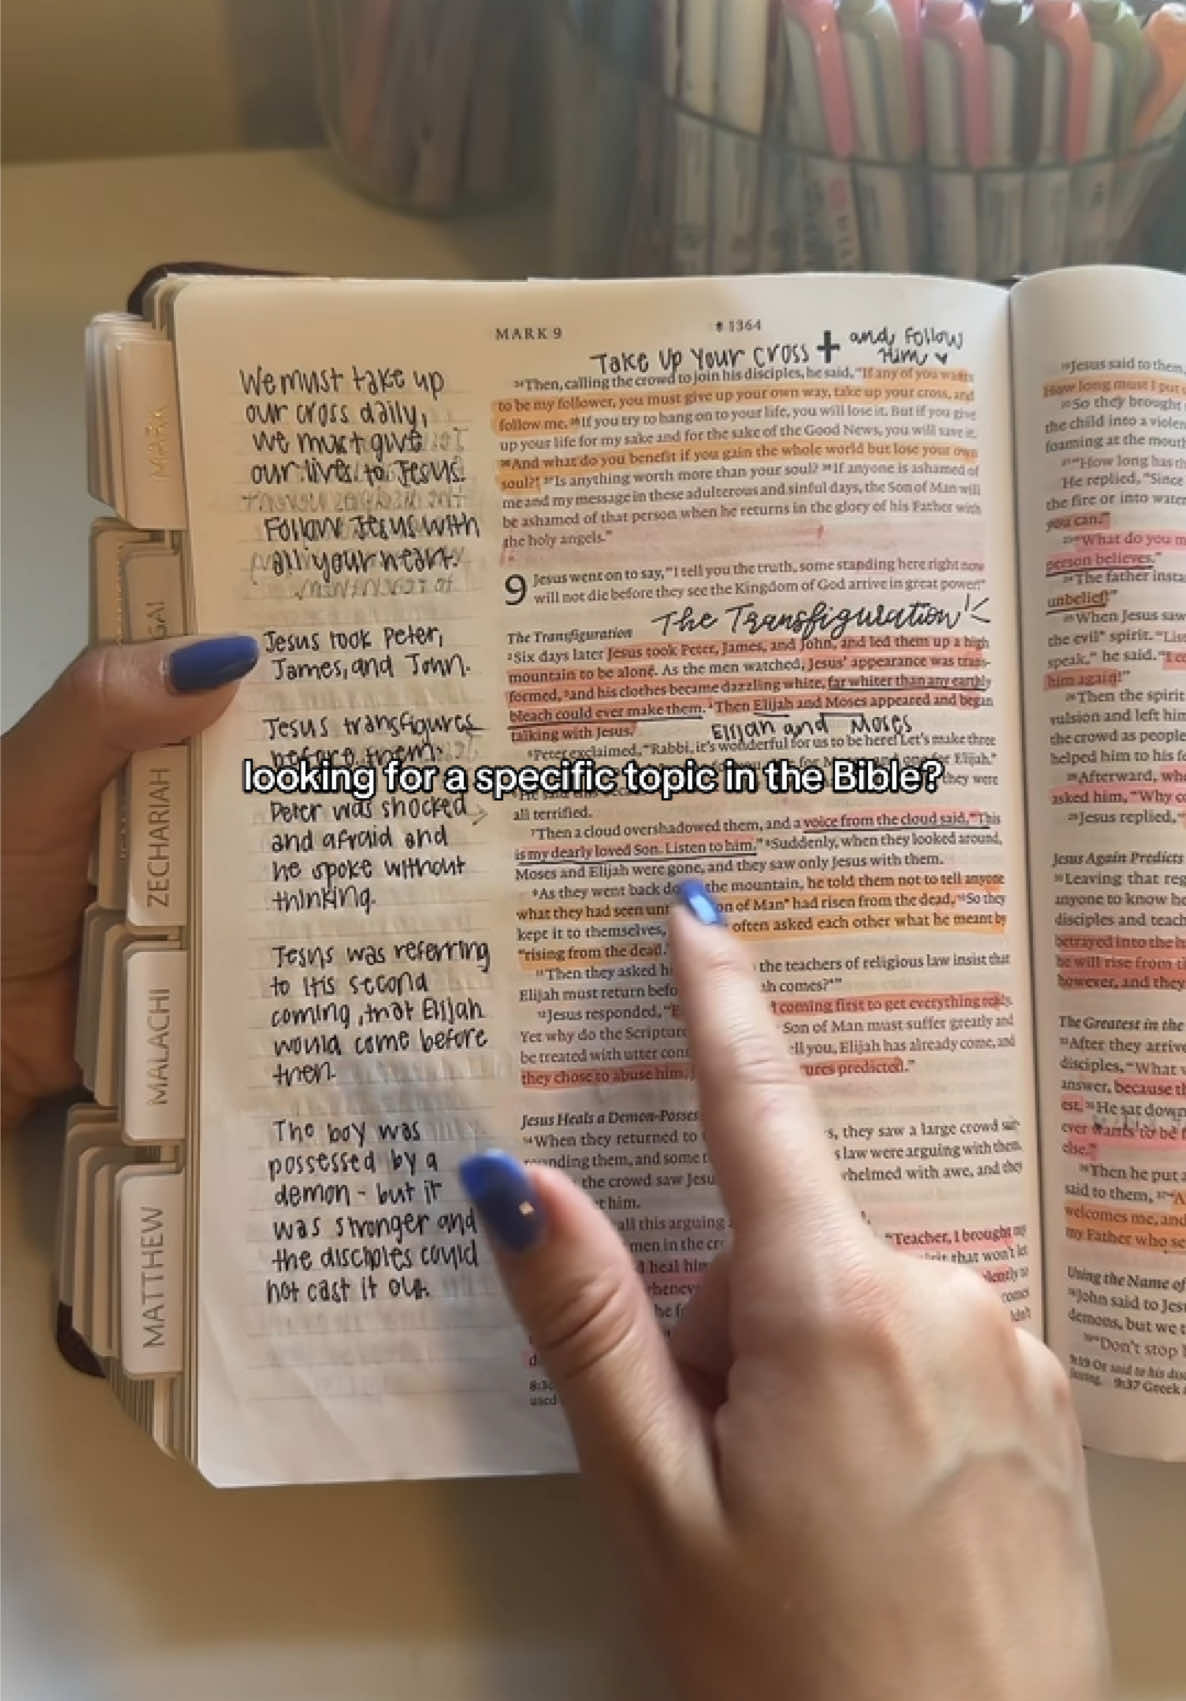 MARK 9
1364
Take Up Your Cross and Follow Him
34Then, calling the crowd to join his disciples, he said, "If any of you wants
to be my follower, you must give up your own way, take up your cross, and
follow me. 35If you try to hang on to your life, you will lose it. But if you give
up your life for my sake and for the sake of the Good News, you will save it.
36And what do you benefit if you gain the whole world but lose your own
soul? 37Is anything worth more than your soul? 38If anyone is ashamed of
me and my message in these adulterous and sinful days, the Son of Man will
be ashamed of that person when he returns in the glory of his Father with
the holy angels."
9 Jesus went on to say, "I tell you the truth, some standing here right now
will not die before they see the Kingdom of God arrive in great power!"
The Transfiguration The Transfiguration!
2Six days later Jesus took Peter, James, and John, and led them up a high
mountain to be alone. As the men watched, Jesus' appearance was trans-
formed, 3and his clothes became dazzling white, far whiter than any earthly
bleach could ever make them. 4Then Elijah and Moses appeared and began
talking with Jesus.
Elijah and Moses
5Peter exclaimed, "Rabbi, it's wonderful for us to be here! Let's make three
for Elijah."
they were
all terrified.
7Then a cloud overshadowed them, and a voice from the cloud said, "This
is my dearly loved Son. Listen to him." 8Suddenly, when they looked around,
Moses and Elijah were gone, and they saw only Jesus with them.
9As they went back the mountain, he told them not to tell anyone
what they had seen of Man* had risen from the dead. 10So they
kept it to themselves, often asked each other what he meant by
"rising from the dead."
11Then they asked the teachers of religious law insist that
Elijah must return comes?"
12Jesus responded, coming first to get everything ready.
Yet why do the Son of Man must suffer greatly and
be treated with utter you, Elijah has already come, and
they chose to abuse him, predicted."
Jesus Heals a
14When they returned to they saw a large crowd
them, and some law were arguing with them.
the crowd saw with awe, and they
him.
all this arguing
men in the "Teacher, I brought my
heal that won't let
We must take up
our cross daily,
We must give
our lives to Jesus.
Follow Jesus with
all your heart.
Jesus took Peter,
James, and John.
Jesus transfigures
before them.
Peter was shocked
and afraid and
he spoke without
thinking.
Jesus was referring
to His second
coming, that Elijah
would come before
then.
The boy was
possessed by a
demon - but it
was stronger and
the disciples could
not cast it out.
looking for a specific topic in the Bible?
MARK
ZECHARIAH
MALACHI
MATTHEW
Jesus said to them,
How long must I put
So they brought
the child into a
foaming at the mouth
"How long has
He replied, "Since
the fire or into water
you can."
"What do you
person believes."
The father
unbelief!"
When Jesus saw
the evil* spirit. "Listen
speak," he said. "I
him again!"
Then the spirit
and left him
the crowd as people
helped him to his
Afterward, when
asked him, "Why
Jesus replied,
Jesus Again Predicts
30Leaving that
anyone to know
disciples and
betrayed into the
he will rise from
however, and they
The Greatest in the
33After they
disciples, "What
answer, because
He sat down
wants to be
else."
Then he put
said to them,
welcomes me, and
my Father who
Using the Name of
38John said to
demons, but we
"Don't stop
9:19 Or said to his
9:37 Greek